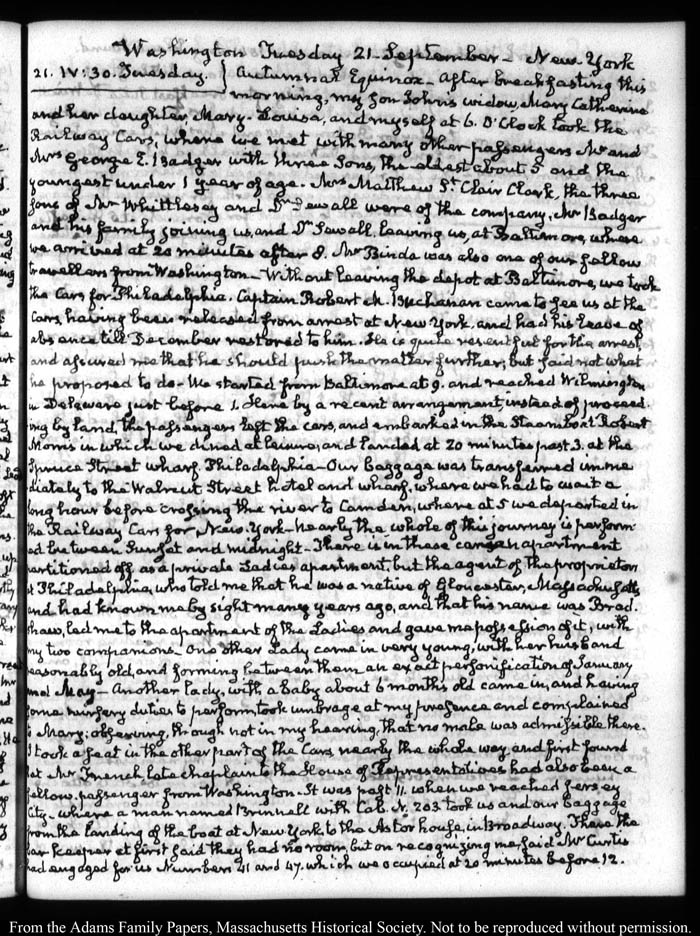 Washington Tuesday 21. September — New-York
21. IV:30. Tuesday. } Autumnal Equinox — After breakfasting this
morning, my Son John's widow, Mary Catherine
and her daughter, Mary-Louisa, and myself at 6. O'Clock took the
Railway Cars; where we met with many other passengers Mr and
Mrs George E. Badger with three Sons, the eldest about 5 and the
youngest under 1 year of age. Mrs Matthew St Clair Clark, the three
sons of Mr Whittlesey and Dr Sewall were of the company; Mr Badger
and his family joining us, and Dr Sewall leaving us, at Baltimore, where
we arrived at 20 minutes after 8. Mr Binda was also one of our fellow
travellers from Washington — Without leaving the depot at Baltimore, we took
the Cars for Philadelphia. Captain Robert M. Buchanan came to see us at the
Cars, having been released from arrest at New York, and had his leave of
absence till December restored to him. He is quite resentful for the arrest,
and assured me that he should push the matter further; but said not what
he proposed to do — We started from Baltimore at 9. and reached Wilmington
in Delaware just before 1. Here by a recent arrangement, instead of proceed-
ing by land, the passengers left the cars, and embarked in the Steam boat Robert
Morris in which we dined at leisure, and landed at 20 minutes past 3. at the
Spruce Street wharf. Philadelphia — Our baggage was transferred imme
diately to the Walnut Street hotel and wharf. where we had to wait a
long hour before crossing the river to Camden, where at 5 we departed in
the Railway Cars for New-York — nearly the whole of this journey is perform-
ed between Sunset and midnight — There is in these cars an apartment
partitioned off, as a private Ladies apartment, but the agent of the proprietors
at Philadelphia, who told me that he was a native of Gloucester, Massachusetts,
and had known me by sight many years ago, and that his name was Brad.
shaw, led me to the apartment of the Ladies and gave me possession of it, with
my two companions — One other Lady came in very young, with her husband
reasonably old, and forming between them an exact personification of January
and May — Another lady, with a baby about 6 months old came in, and having
some nursery duties to perform took umbrage at my presence and complained
to Mary; observing, though not in my hearing, that no male was admissible there.
I took a seat in the other part of the Cars, nearly the whole way and first found
that Mr French late chaplain to the House of Representatives had also been a
fellow passenger from Washington — It was past 11. when we reached Jersey
City — where a man named Brinnell with Cab. N. 203 took us and our baggage
from the landing of the boat at New York to the Astor house, in Broadway. There the
bar keeper at first said they had no room, but on recognizing me said Mr Curtis
had engaged for us Numbers 41 and 47. which we occupied at 20 minutes before 12.
From the Adams Family Papers, Massachusetts Historical Society. Not to be reproduced without permission.